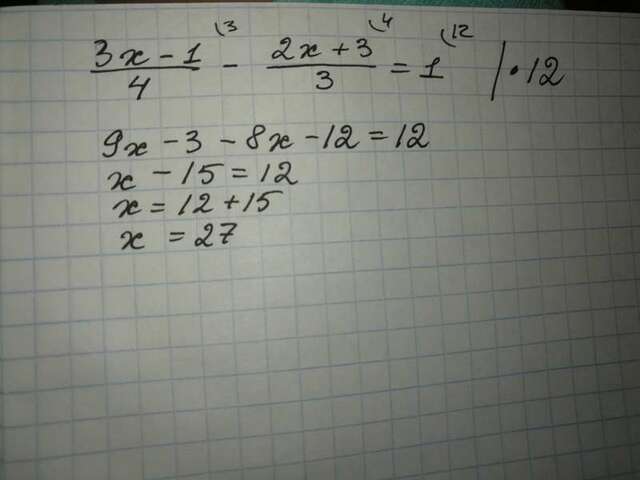 (3x - 1)/4 ⁽³ - (2x + 3)/3 ⁽⁴ = 1 ⁽¹² | · 12
9x - 3 - 8x - 12 = 12
x - 15 = 12
x = 12 + 15
x = 27